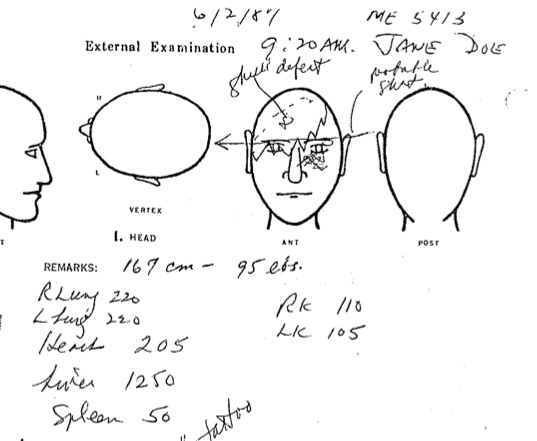 6/2/87 ME 5413
External Examination 9:20 AM. JANE DOE
skull defect probable
shot.
R
L
VERTEX
1. HEAD
ANT
POST
REMARKS: 167 cm - 95 lbs.
R Lung 220
L Lung 220
Heart 205
Liver 1250
Spleen 50
RK 110
LK 105
tattoo